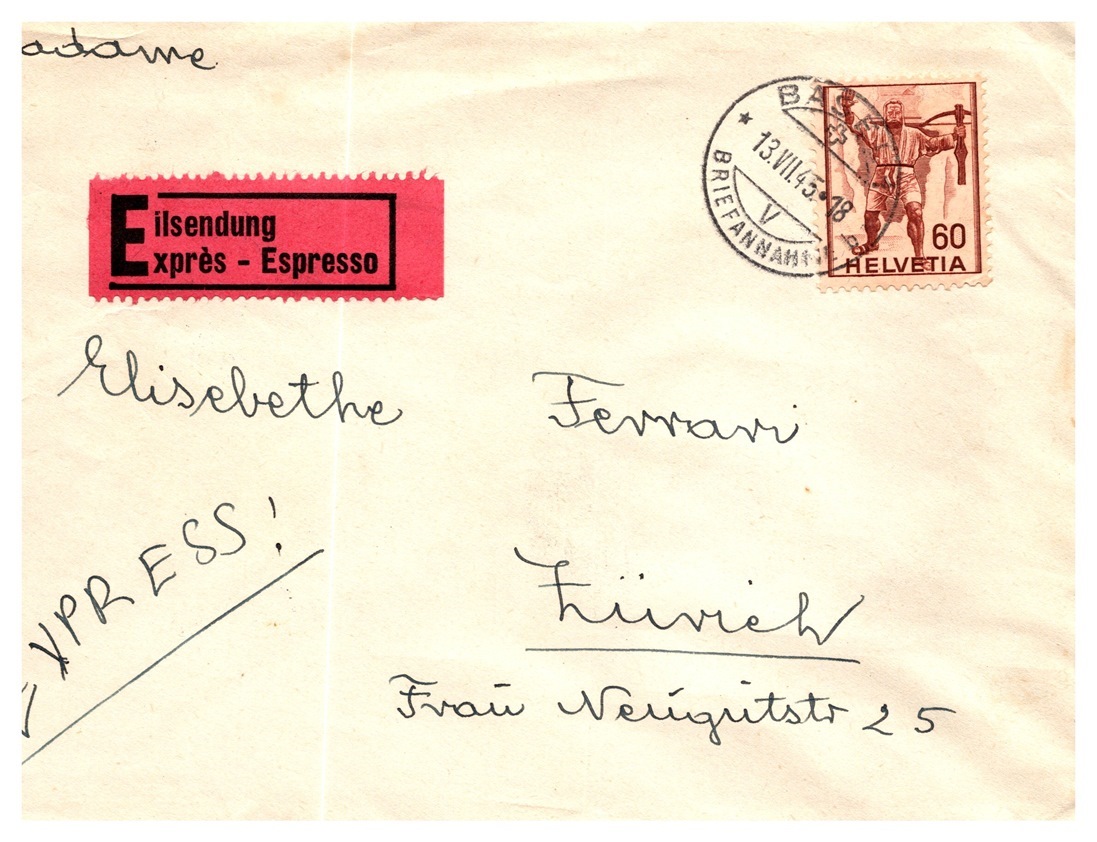 adame
BASEL
13.VII.45-18
V
BRIEFANNAHME
60
HELVETIA
Eilsendung
Exprès - Espresso
Elisebethe Ferrari
EXPRESS!
Zürich
Frau Neugutstr 25